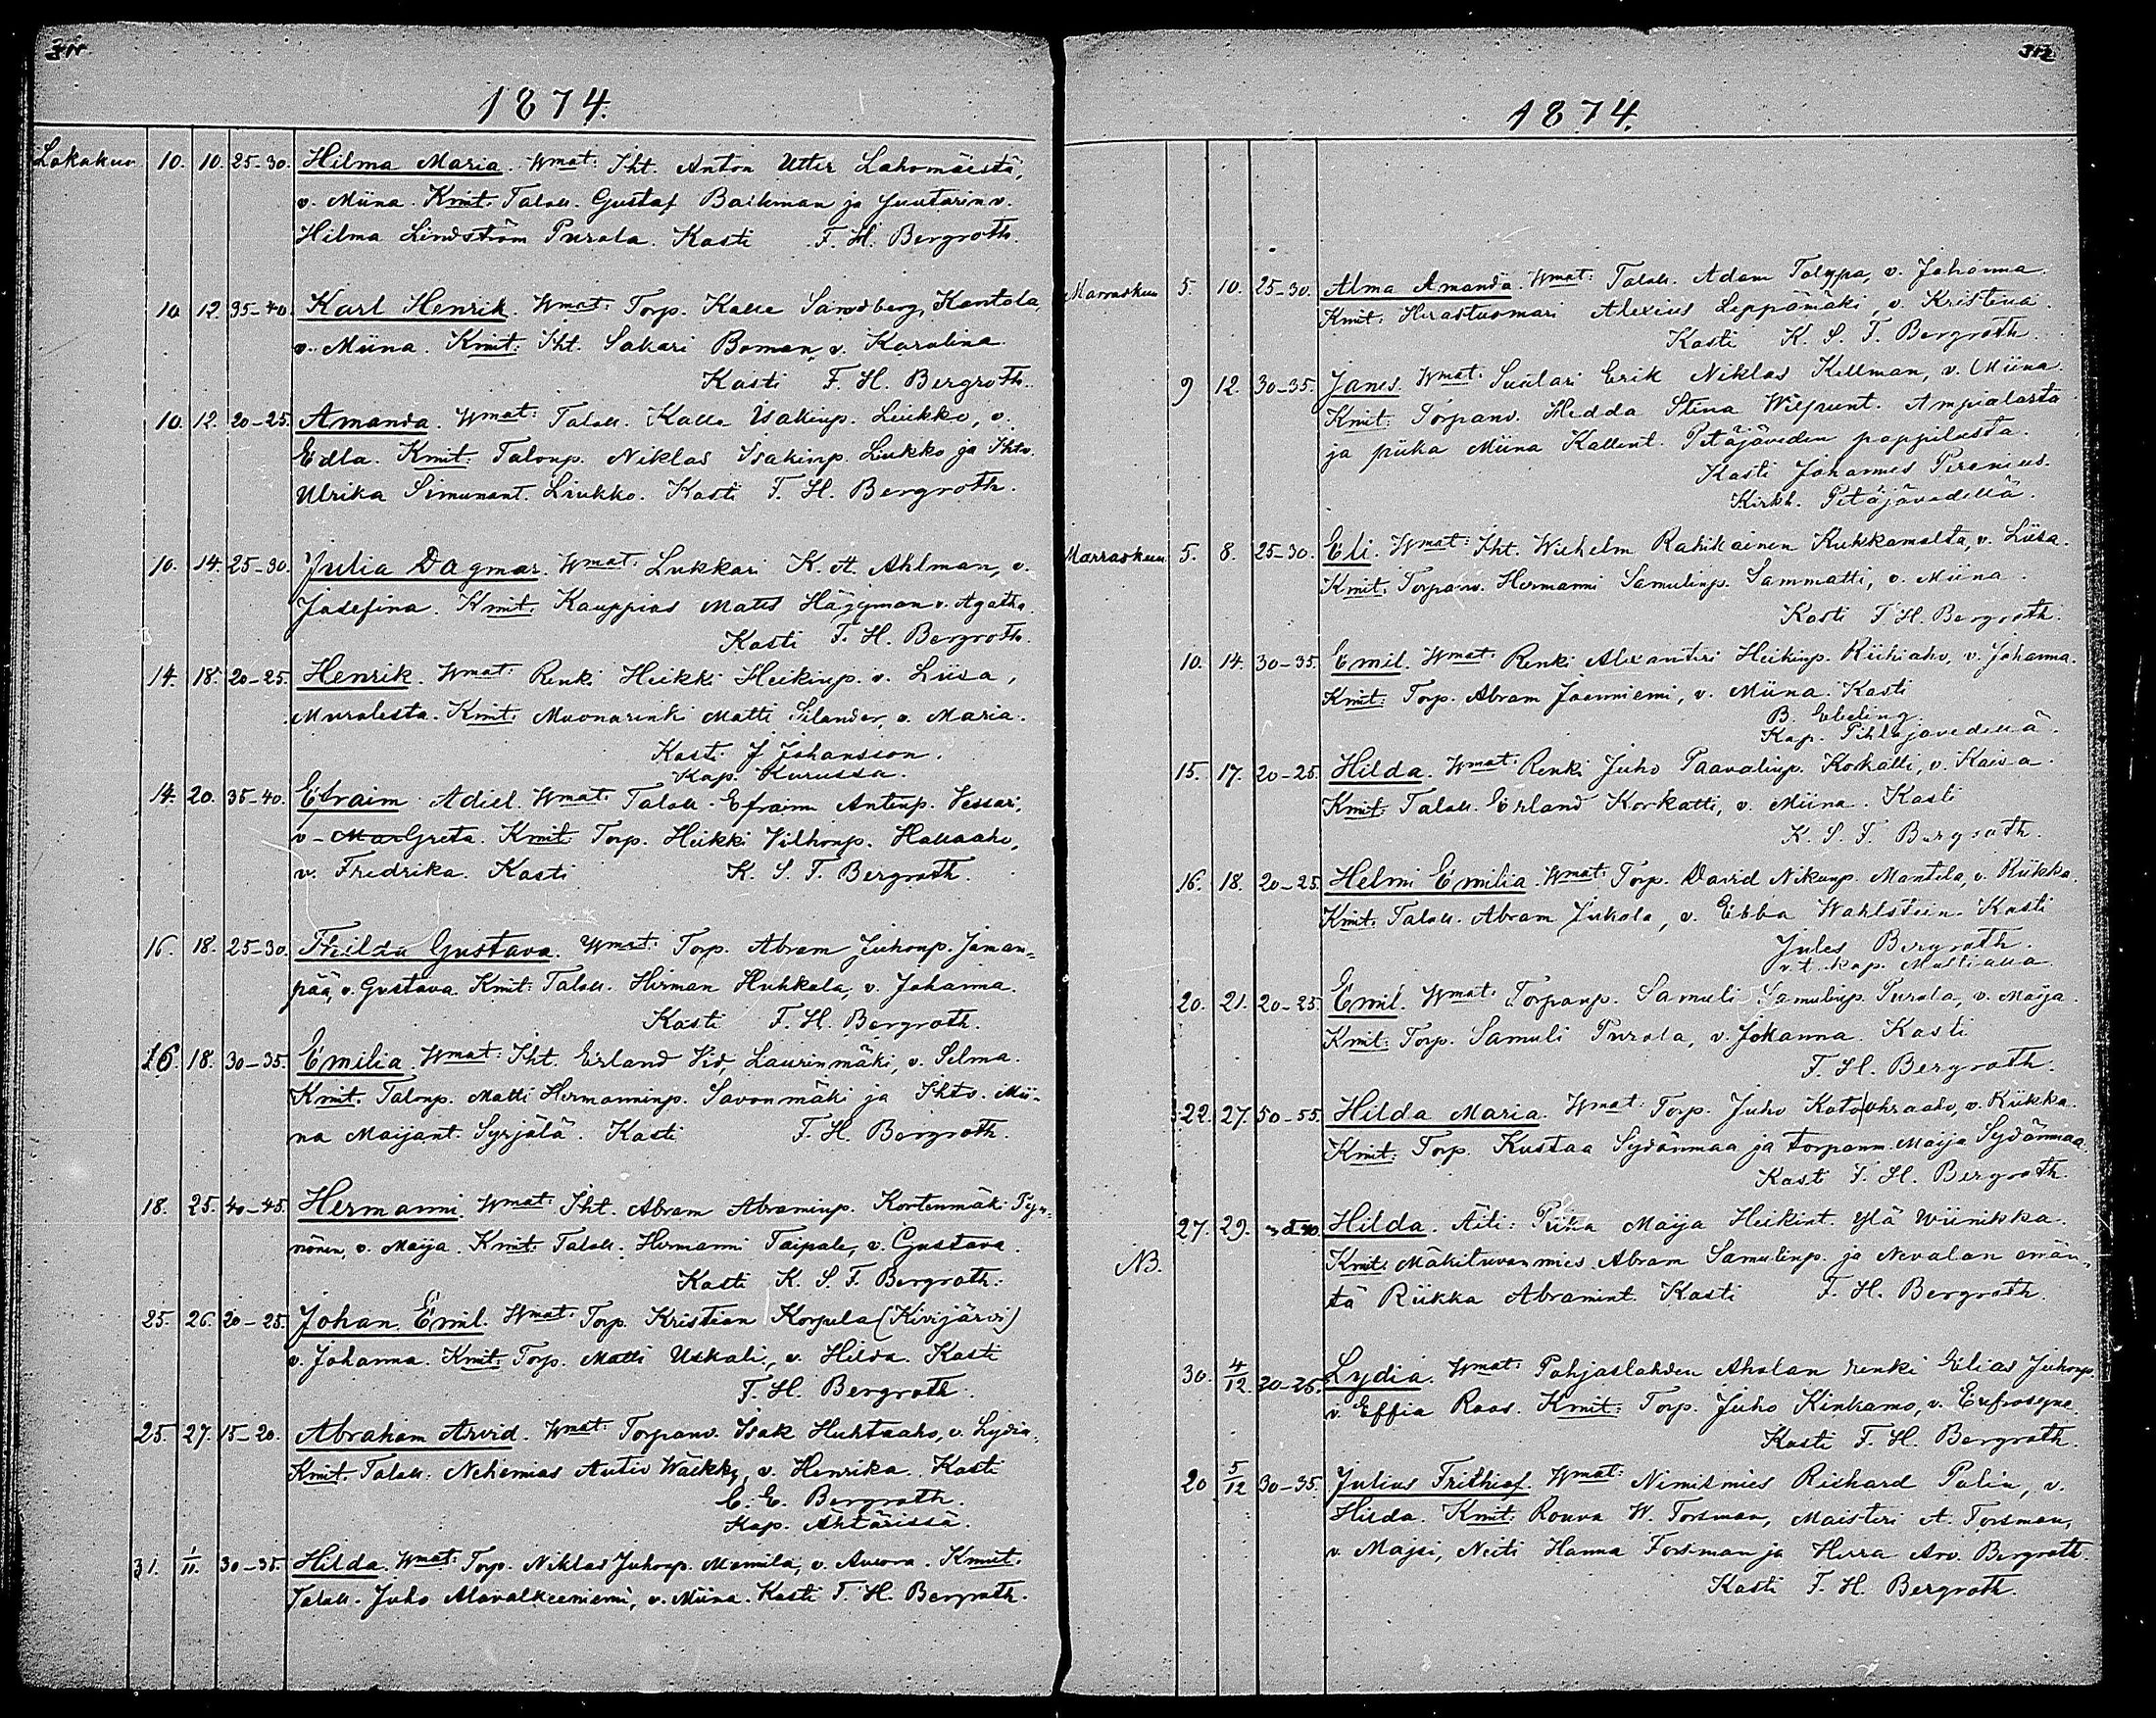 311.
1874.
Lokakuu 10. 10. 25-30. Hilma Maria. Wmat: Iht. Anton Utter Lahomäestä,
v. Miina. Kmit. Taloll. Gustaf Backman ja Juutarin v.
Hilma Lindström Purala. Kasti F. H. Bergroth.
10. 12. 35-40. Karl Henrik. Wmat: Torp. Kalle Sandberg, Kantola,
v. Miina. Kmit: Iht. Sakari Boman, v. Karolina.
Kasti F. H. Bergroth.
10. 12. 20-25. Amanda. Wmat: Taloll. Kalle Isakinp. Liukko, v.
Edla. Kmit: Talonp. Niklas Isakinp. Liukko ja Ihtv.
Ulrika Simunant. Liukko. Kasti F. H. Bergroth.
10. 14. 25-30. Julia Dagmar. Wmat. Lukkari K. A. Ahlman, v.
Josefina. Kmit. Kauppias Mats Häggman v. Agatha.
Kasti F. H. Bergroth.
14. 18. 20-25. Henrik. Wmat: Renki Heikki Heikinp. v. Liisa,
Muralesta. Kmit. Muonarenki Matti Silander, v. Maria.
Kasti J. Johansson.
Kap. Kurussa.
14. 20. 35-40. Efraim Adiel. Wmat: Taloll. Efraim Antinp. Vessari,
v. Mar Greta. Kmit Torp. Heikki Vilhonp. Hallaaho,
v. Fredrika. Kasti K. S. F. Bergroth.
16. 18. 25-30. Thilda Gustava. Wmat: Torp. Abram Juhonp. Jäman-
pää, v. Gustava. Kmit: Taloll. Herman Huhkola, v. Johanna.
Kasti F. H. Bergroth.
16. 18. 30-35. Emilia. Wmat: Iht. Erland Vid, Laurinmäki, v. Selma.
Kmit. Talonp. Matti Hermanninp. Savonmäki ja Ihtv. Mii-
na Maijant. Syrjälä. Kasti F. H. Bergroth.
18. 25. 40-45. Hermanni. Wmat: Iht. Abram Abraminp. Kortenmäki Pyn-
nönen, v. Maija. Kmit. Taloll. Hermanni Taipale, v. Gustava.
Kasti K. S. F. Bergroth.
25. 26. 20-25. Johan Emil. Wmat: Torp. Kristian Korpela (Kivijärvi)
v. Johanna. Kmit: Torp. Matti Uskali, v. Hilda. Kasti
F. H. Bergroth.
25. 27. 15-20. Abraham Arvid. Wmat: Torpanv. Isak Huhtaaho, v. Lydia.
Kmit. Taloll. Nehemias Autio Wäkky, v. Henrika. Kasti
C. E. Bergroth.
Kap. Ähtärissä.
31. 1/11. 30-35. Hilda. Wmat: Torp. Niklas Juhonp. Mamila, v. Aurora. Kmit.
Taloll. Juho Alavalkeeniemi, v. Miina. Kasti F. H. Bergroth.
312
1874.
Marraskuu 5. 10. 25-30. Alma Amanda. Wmat: Taloll. Adam Tolppa, v. Johanna.
Kmit: Herastuomari Alexius Leppämäki, v. Kristina.
Kasti K. S. F. Bergroth.
9 12. 30-35. Janes. Wmat: Suutari Erik Niklas Kellman, v. Miina.
Kmit: Torpanv. Hedda Stina Wilpunt. Ampialasta
ja piika Miina Kallent. Petäjäveden pappilasta.
Kasti Johannes Perenius.
Kirkh. Petäjävedellä.
Marraskuu 5. 8. 25-30. Eli. Wmat: Iht. Wilhelm Rahikainen Kukkamalta, v. Liisa.
Kmit. Torpanv. Hermanni Samulinp. Sammatti, v. Miina.
Kasti F. H. Bergroth.
10. 14. 30-35. Emil. Wmat: Renki Alexanteri Heikinp. Riihiaho, v. Johanna.
Kmit: Torp. Abram Joenniemi, v. Miina. Kasti
B. Ebeling
Kap. Pihlajavedellä.
15. 17. 20-25. Hilda. Wmat: Renki Juho Paavalinp. Korkatti, v. Kaisa.
Kmit: Taloll. Erland Korkatti, v. Miina. Kasti
K. S. F. Bergroth.
16. 18. 20-25. Helmi Emilia. Wmat: Torp. David Nikunp. Mantila, v. Riikka.
Kmit. Taloll. Abram Jukola, v. Ebba Wahlstein. Kasti
Jules Bergroth.
v.t. kap. Multialla
20. 21. 20-25. Emil. Wmat: Torpanp. Samuli Samulinp. Purola, v. Maija.
Kmit: Torp. Samuli Purola, v. Johanna. Kasti
F. H. Bergroth.
22. 27. 50-55. Hilda Maria. Wmat: Torp. Juho Kato Ohraaho, v. Riikka.
Kmit: Torp. Kustaa Sydänmaa ja torpanm. Maija Sydänmaa.
Kasti F. H. Bergroth.
27. 29. Hilda. Äiti: Piika Maija Heikint. Ylä Wiinikka.
NB. Kmit: Mäkituvanmies Abram Samulinp. ja Nevalan emän-
tä Riikka Abramint. Kasti F. H. Bergroth.
30. 4/12. 20-25. Lydia. Wmat: Pohjaslahden Aholan renki Elias Juhonp.
v. Effia Roos. Kmit: Torp. Juho Kinkamo, v. Eufrosyne.
Kasti F. H. Bergroth.
20 5/12 30-35. Julius Frithiof. Wmat: Nimismies Richard Palin, v.
Hilda. Kmit: Rouva W. Forsman, Maisteri A. Forsman,
v. Majsi, Neiti Hanna Forsman ja Herra Arv. Bergroth.
Kasti F. H. Bergroth.